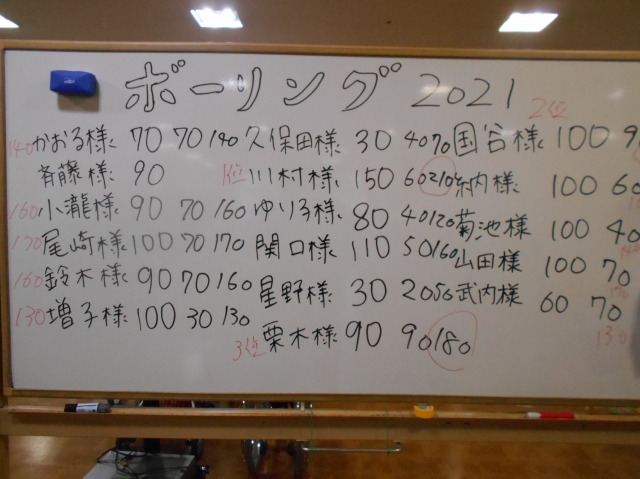 ボーリング 2021
2位
140 かおる様 70 70 140 久保田様 30 40 70 国谷様 100
斉藤様 90 1位 川村様 150 60 210 納様 100 60
160 小瀧様 90 70 160 ゆり子様 80 40 120 菊池様 100 40
170 尾崎様 100 70 170 関口様 110 50 160 山田様 100 70
160 鈴木様 90 70 160 星野様 30 20 50 武内様 60 70
130 増子様 100 30 130 130
3位 栗木様 90 90 180